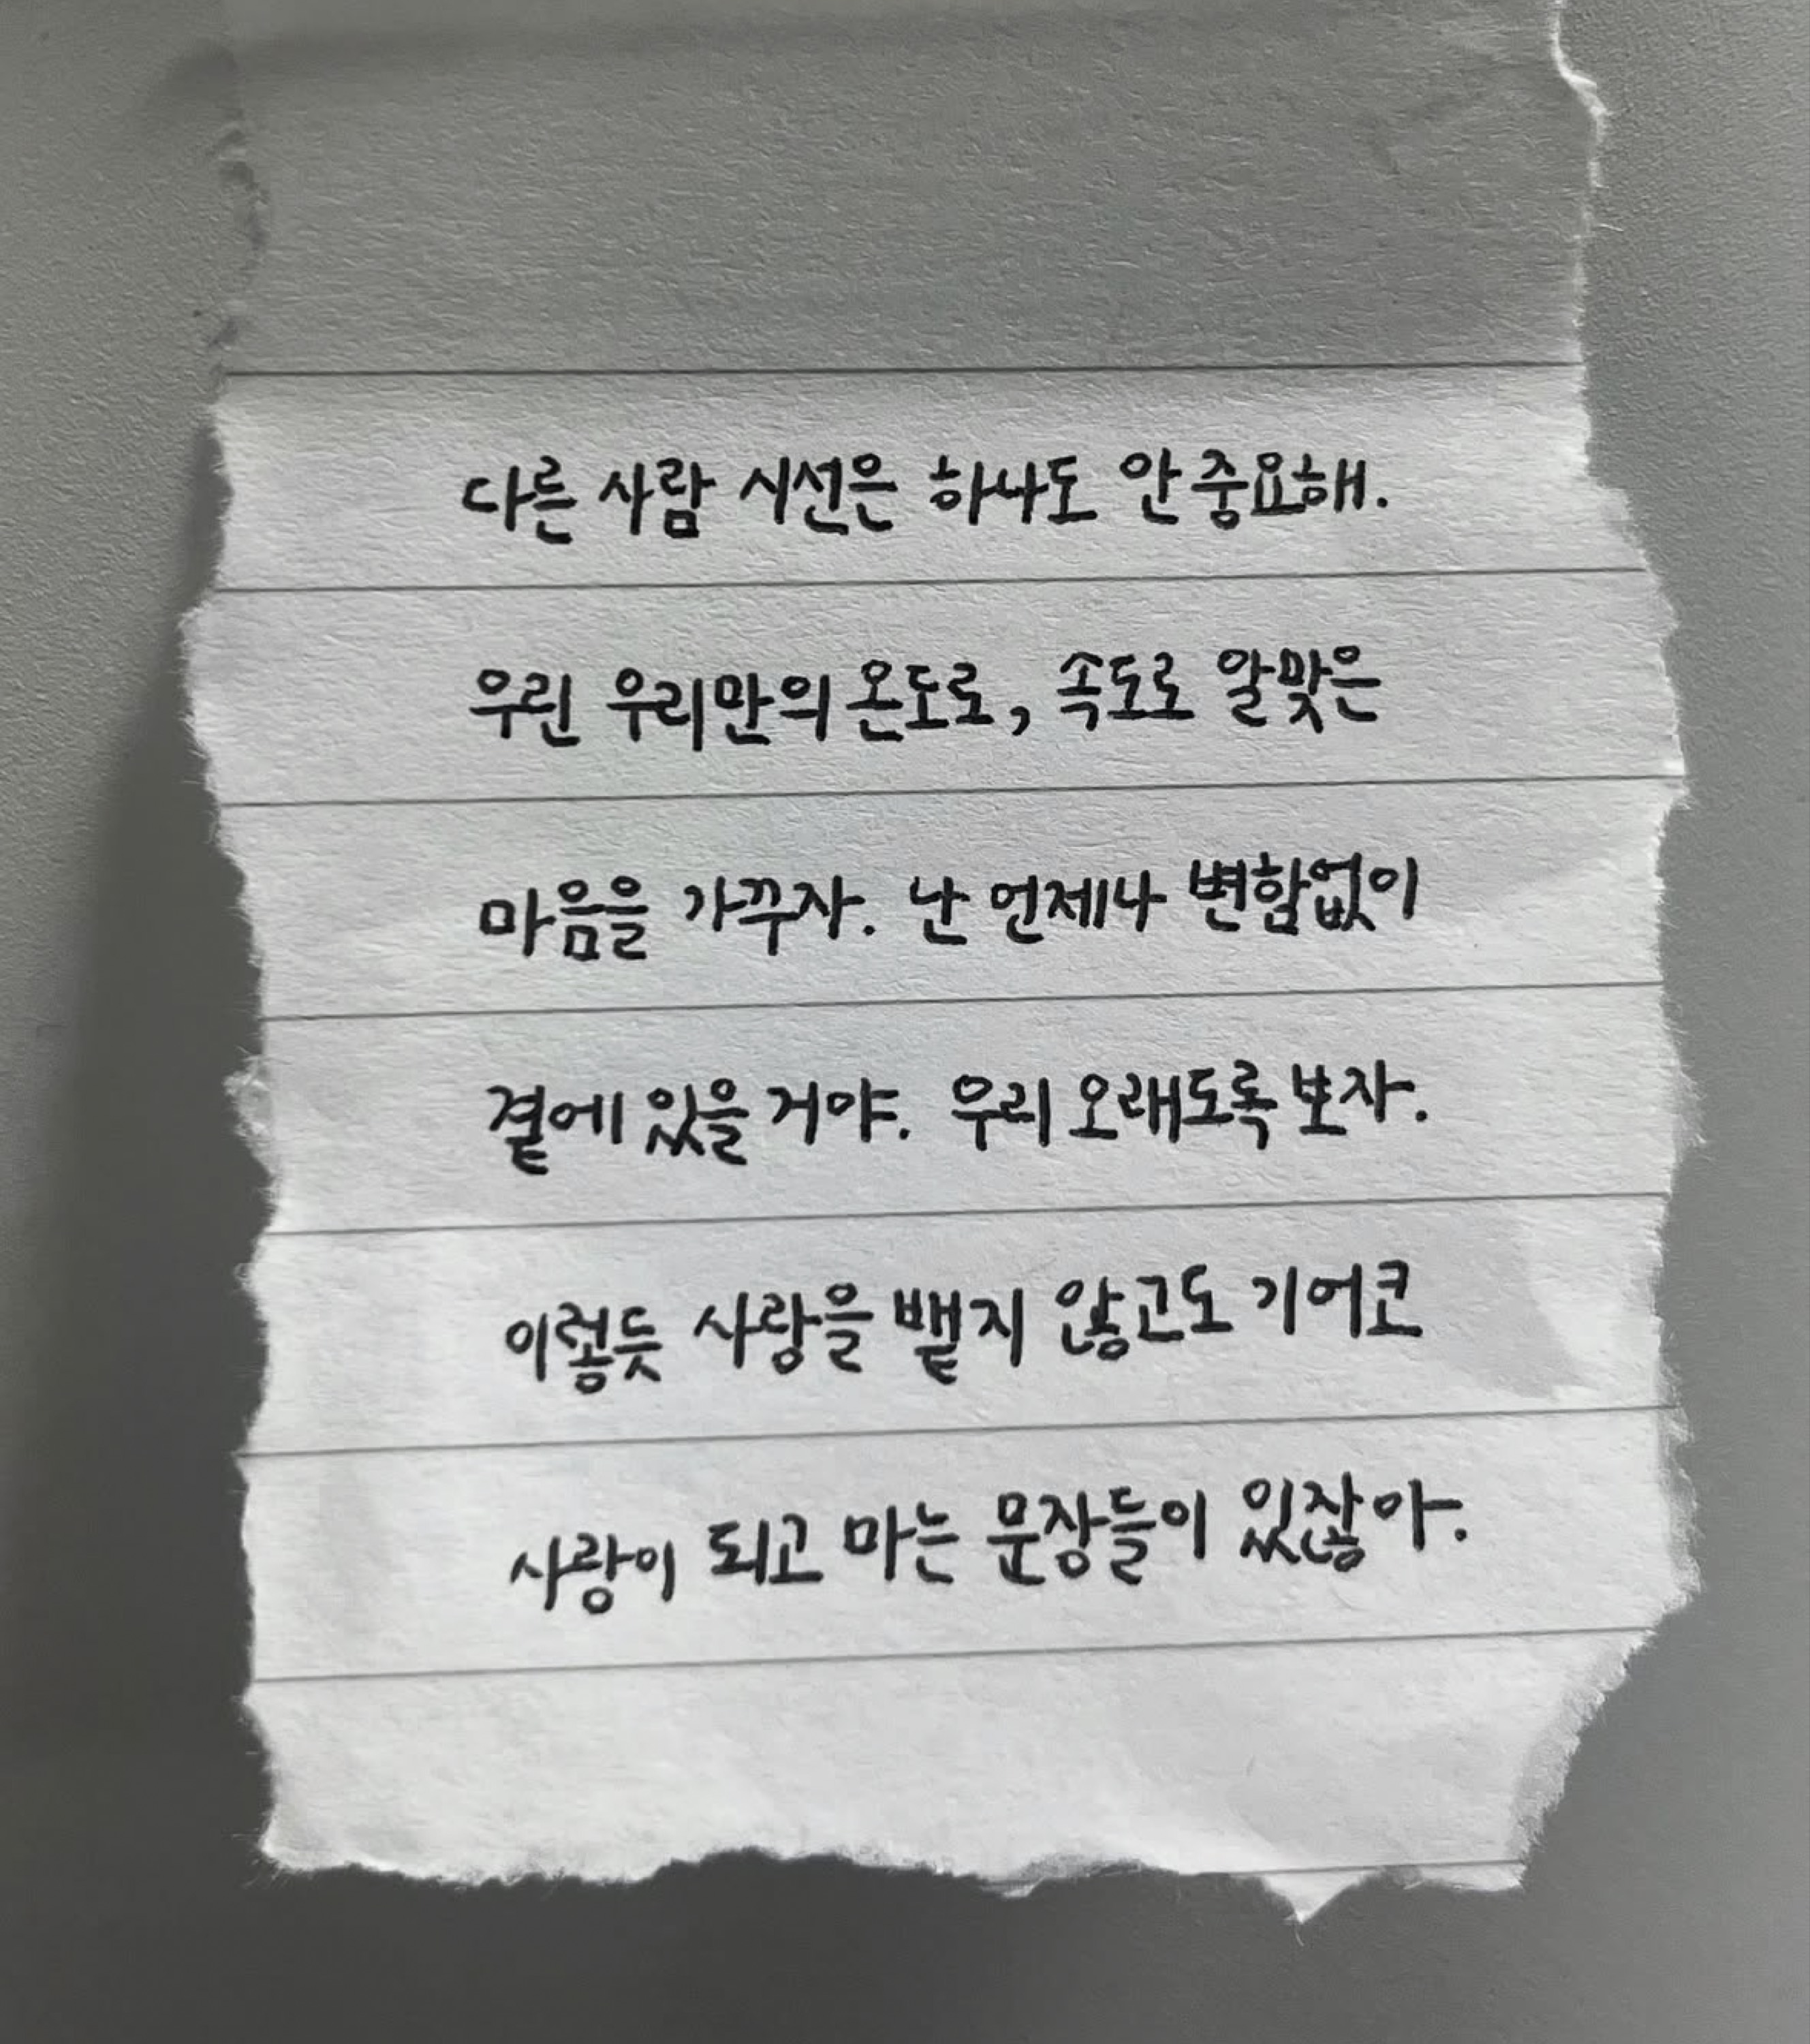 다른 사람 시선은 하나도 안 중요해.
우린 우리만의 온도로, 속도로 알맞은
마음을 가꾸자. 난 언제나 변함없이
곁에 있을 거야. 우리 오래도록 보자.
이렇듯 사랑을 뱉지 않고도 기어코
사랑이 되고 마는 문장들이 있잖아.